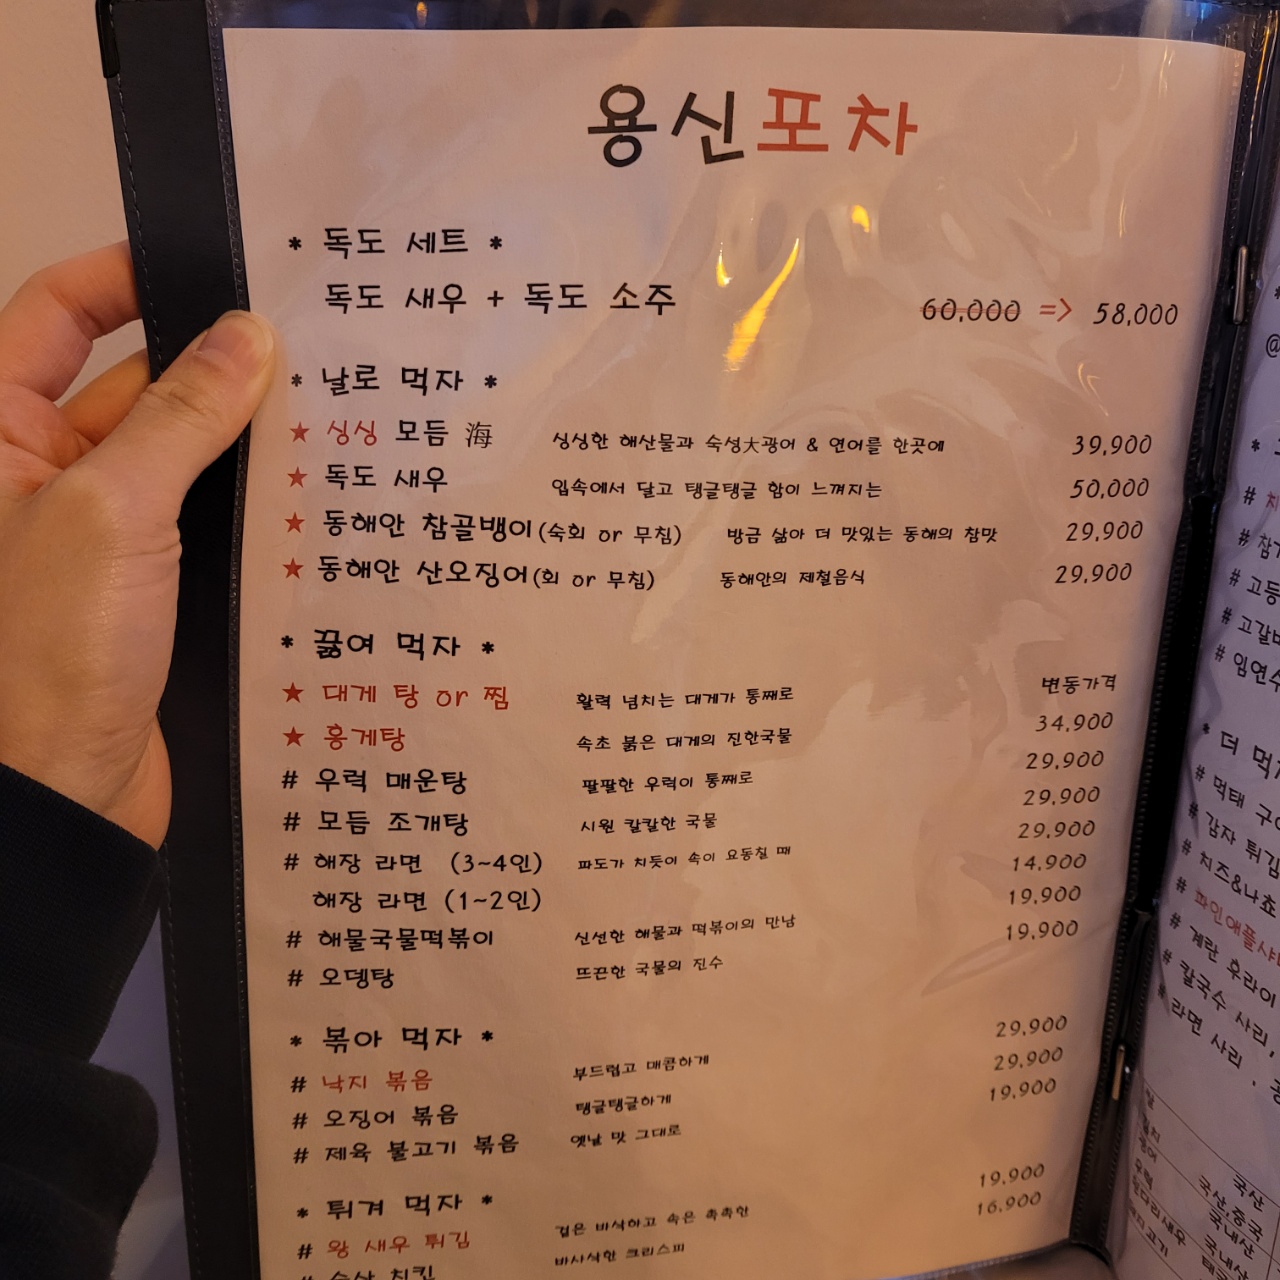 용신포차
* 독도 세트 *
독도 새우 + 독도 소주 60,000 => 58,000
* 날로 먹자 *
★ 싱싱 모듬 海 싱싱한 해산물과 숙성大광어 & 연어를 한곳에 39,900
★ 독도 새우 입속에서 달고 탱글탱글 함이 느껴지는 50,000
★ 동해안 참골뱅이(숙회 or 무침) 방금 삶아 더 맛있는 동해의 참맛 29,900
★ 동해안 산오징어(회 or 무침) 동해안의 제철음식 29,900
* 끓여 먹자 *
★ 대게 탕 or 찜 활력 넘치는 대게가 통째로 변동가격
★ 홍게탕 속초 붉은 대게의 진한국물 34,900
# 우럭 매운탕 팔팔한 우럭이 통째로 29,900
# 모듬 조개탕 시원 칼칼한 국물 29,900
# 해장 라면 (3~4인) 파도가 치듯이 속이 요동칠 때 29,900
해장 라면 (1~2인) 14,900
# 해물국물떡볶이 신선한 해물과 떡볶이의 만남 19,900
# 오뎅탕 뜨끈한 국물의 진수 19,900
* 볶아 먹자 *
# 낙지 볶음 부드럽고 매콤하게 29,900
# 오징어 볶음 탱글탱글하게 29,900
# 제육 불고기 볶음 옛날 맛 그대로 19,900
* 튀겨 먹자 *
# 왕 새우 튀김 겉은 바삭하고 속은 촉촉한 19,900
# 순살 치킨 바사삭한 크리스피 16,900
* 더 먹자
# 먹태 구이
# 감자 튀김
# 치즈&나쵸
# 파인애플샤베
# 계란 후라이
# 칼국수 사리,
# 라면 사리 , 공
국산
국산,중국
국내산
국내산